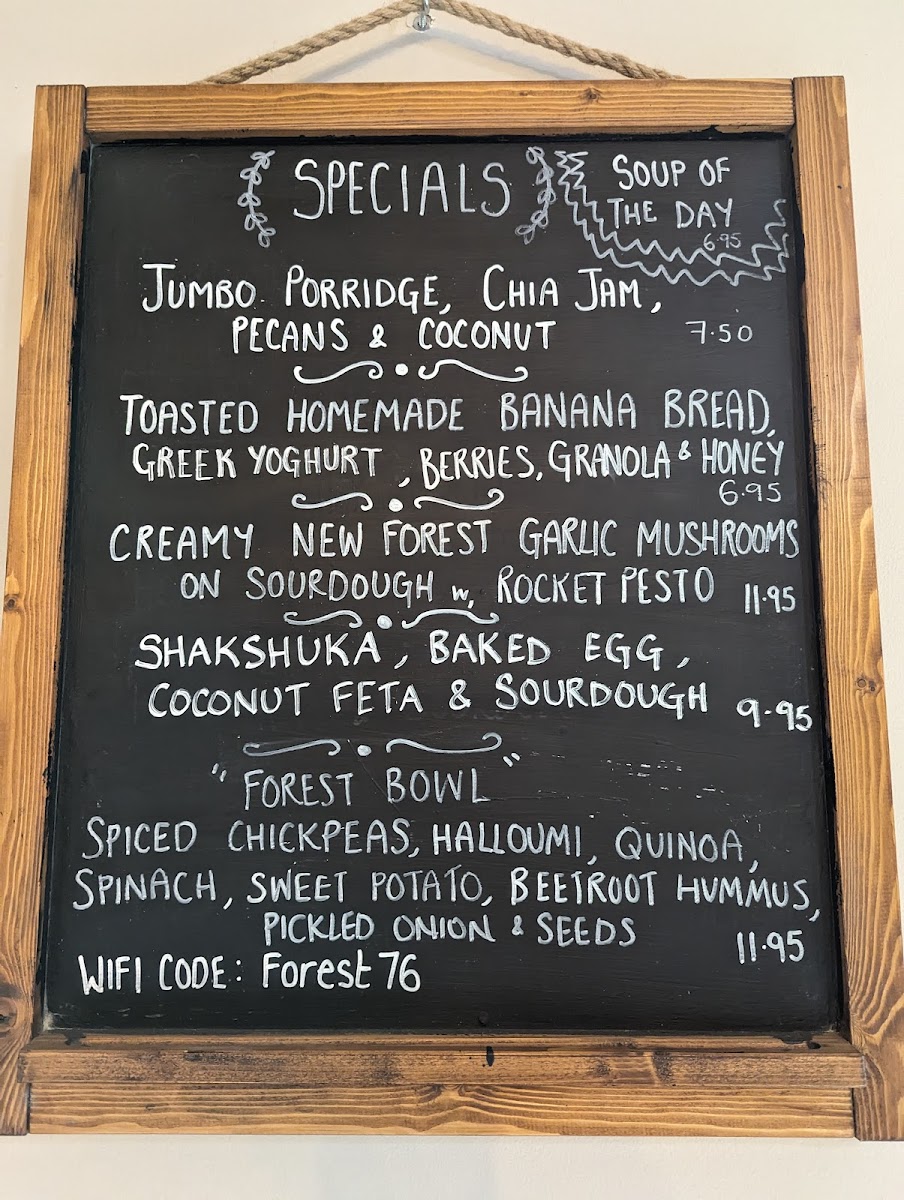 SPECIALS
SOUP OF
THE DAY
6.95
JUMBO PORRIDGE, CHIA JAM,
PECANS & COCONUT 7.50
TOASTED HOMEMADE BANANA BREAD,
GREEK YOGHURT, BERRIES, GRANOLA & HONEY
6.95
CREAMY NEW FOREST GARLIC MUSHROOMS
ON SOURDOUGH w, ROCKET PESTO 11.95
SHAKSHUKA, BAKED EGG,
COCONUT FETA & SOURDOUGH 9.95
"FOREST BOWL"
SPICED CHICKPEAS, HALLOUMI, QUINOA,
SPINACH, SWEET POTATO, BEETROOT HUMMUS,
PICKLED ONION & SEEDS 11.95
WIFI CODE: Forest 76